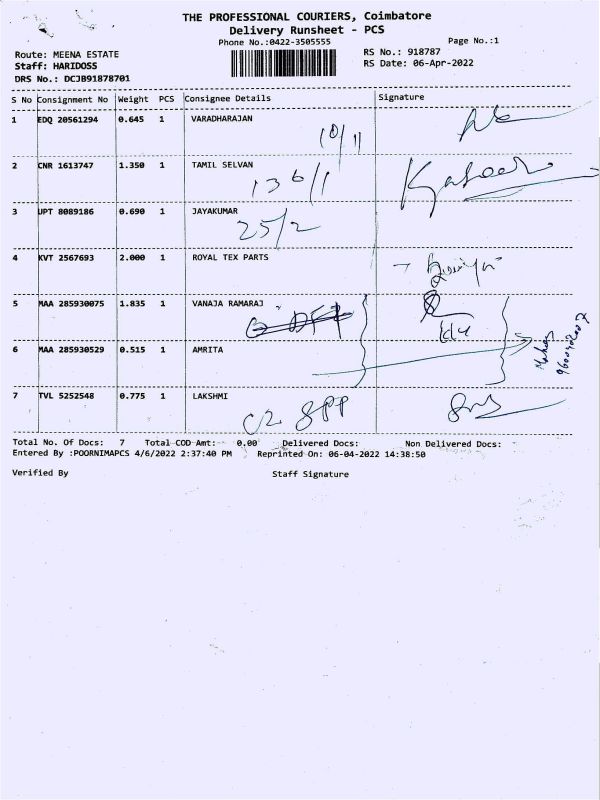 THE PROFESSIONAL COURIERS, Coimbatore
Delivery Runsheet - PCS
Phone No.:0422-3505555
Page No.:1
Route: MEENA ESTATE
RS No.: 918787
Staff: HARIDOSS
RS Date: 06-Apr-2022
DRS No.: DCJB91878701
S No Consignment No Weight PCS Consignee Details Signature
1 EDQ 20561294 0.645 1 VARADHARAJAN
10/11
2 CNR 1613747 1.350 1 TAMIL SELVAN
136/1
3 UPT 8089186 0.690 1 JAYAKUMAR
25/2
4 KVT 2567693 2.000 1 ROYAL TEX PARTS
5 MAA 285930075 1.835 1 VANAJA RAMARAJ
6 MAA 285930529 0.515 1 AMRITA
7 TVL 5252548 0.775 1 LAKSHMI
C2 8PP
Total No. Of Docs: 7 Total COD Amt: 0.00 Delivered Docs: Non Delivered Docs:
Entered By :POORNIMAPCS 4/6/2022 2:37:40 PM Reprinted On: 06-04-2022 14:38:50
Verified By Staff Signature